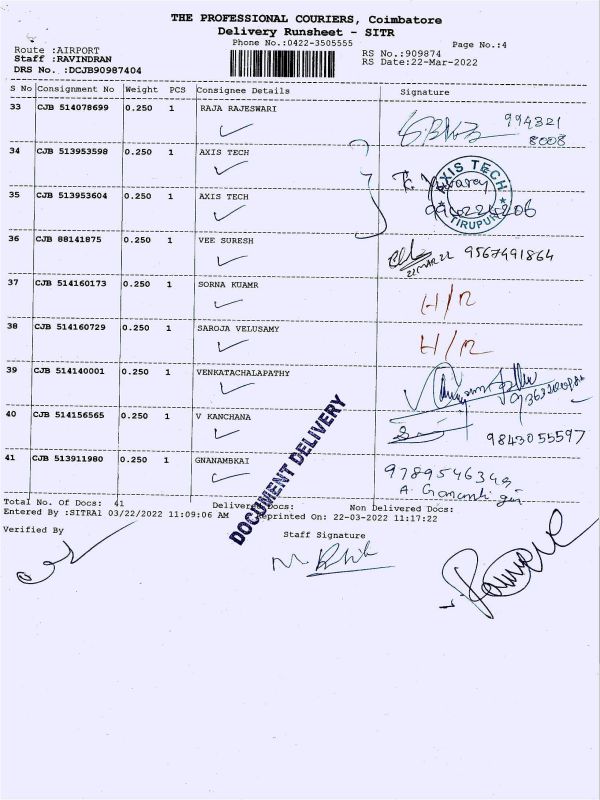 THE PROFESSIONAL COURIERS, Coimbatore
Delivery Runsheet - SITR
Phone No.:0422-3505555
Page No.:4
Route :AIRPORT
Staff :RAVINDRAN
DRS No. :DCJB90987404
RS No.:909874
RS Date:22-Mar-2022
S No Consignment No Weight PCS Consignee Details Signature
33 CJB 514078699 0.250 1 RAJA RAJESWARI
994321
8008
34 CJB 513953598 0.250 1 AXIS TECH
AXIS TECH
TIRUPUR
35 CJB 513953604 0.250 1 AXIS TECH
36 CJB 88141875 0.250 1 VEE SURESH
22 MAR 22 9567491864
37 CJB 514160173 0.250 1 SORNA KUAMR
H/R
38 CJB 514160729 0.250 1 SAROJA VELUSAMY
H/R
39 CJB 514140001 0.250 1 VENKATACHALAPATHY
40 CJB 514156565 0.250 1 V KANCHANA
9843055597
41 CJB 513911980 0.250 1 GNANAMBKAI
9789546349
DOCUMENT DELIVERY
Total No. Of Docs: 41 Delivered Docs: Non Delivered Docs:
Entered By :SITRA1 03/22/2022 11:09:06 AM Reprinted On: 22-03-2022 11:17:22
Verified By
Staff Signature